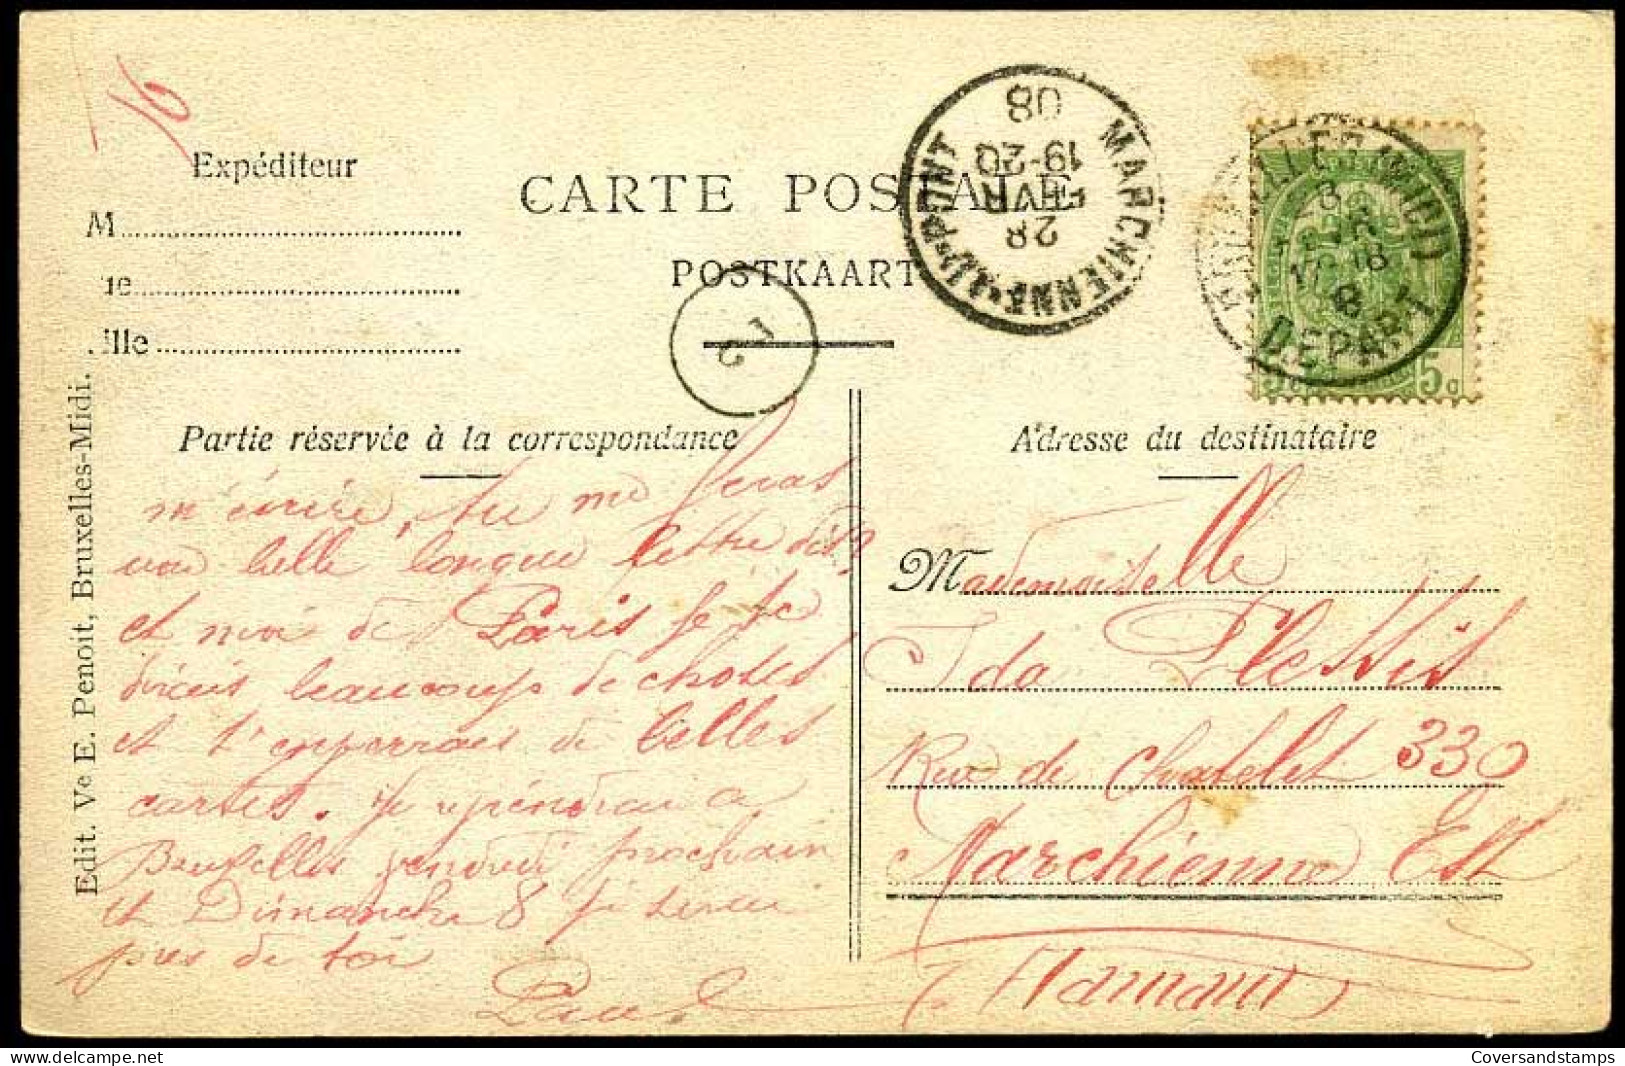 16
Expéditeur
M
ue
ille
CARTE POSTALE
POSTKAART
MARCHIENNE-AU-PONT
28
FEVR
19-20
08
BRUXELLES (MIDI)
17-18
8
DEPART
5c
Edit. Vᵉ E. Penoit, Bruxelles-Midi.
Partie réservée à la correspondance
m'écrire, tu me feras
une belle longue lettre
et moi de Paris je te
dirais beaucoup de choses
et t'enverrais de belles
cartes. Je reviendrai a
Bruxelles vendredi prochain
et Dimanche 8 je serai
pres de toi
Paul
Adresse du destinataire
Mademoiselle
Ida Plessis
Rue de Chatelet 330
Marchienne Est
Hainaut
CoversandStamps